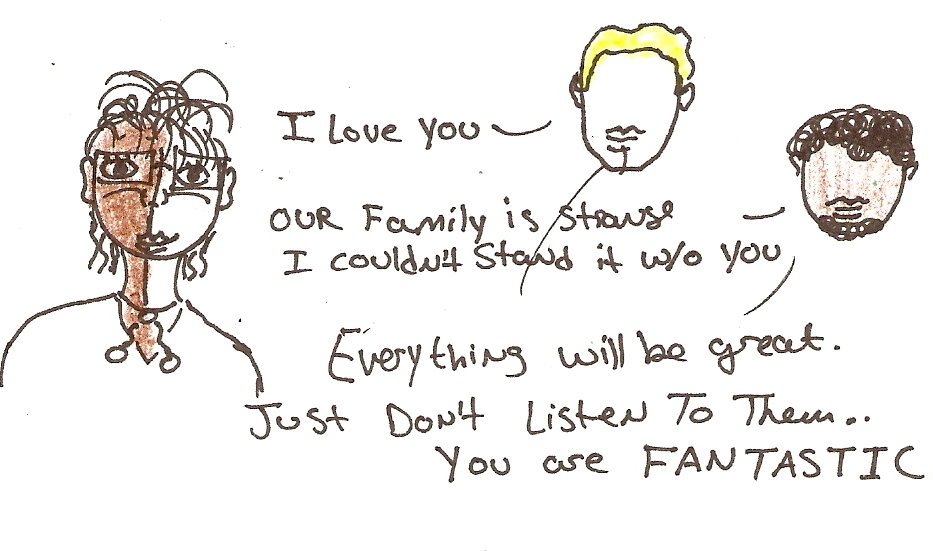 I Love you
OUR Family is Strange
I couldn't Stand it w/o you
Everything will be great.
Just Don't Listen To Them..
You are FANTASTIC